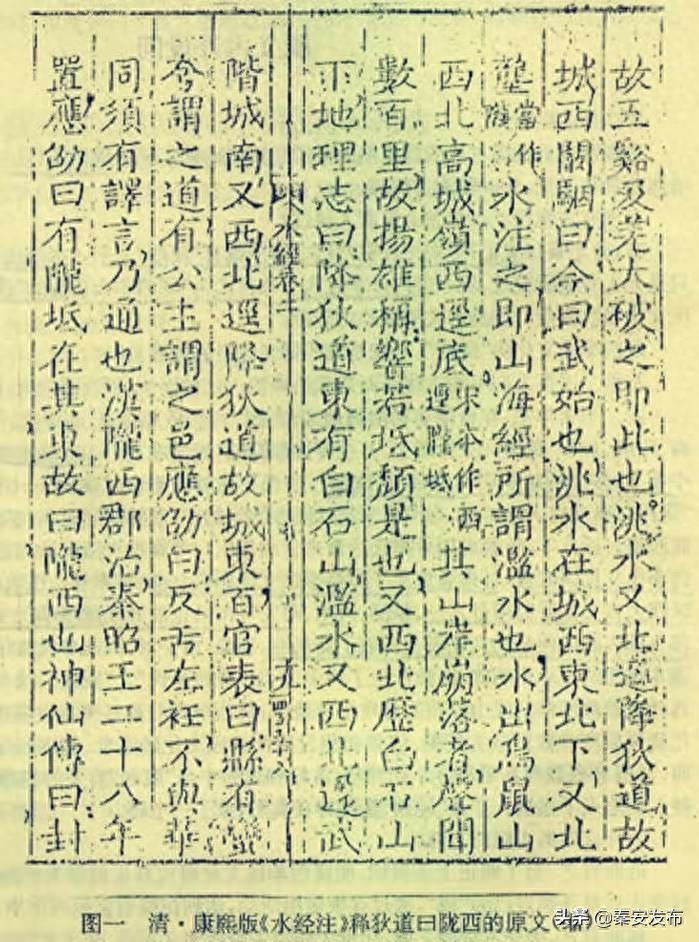 故五谿及羌大破之即此也洮水又北逕降狄道故
城西闞駰曰今曰武始也洮水在城西東北下又北
壟當作隴水注之即山海經所謂濫水也水出鳥鼠山
西北高城嶺西逕底宋本作西逕隴坻其山岸崩落者聲聞
數百里故揚雄稱響若坻頹是也又西北歷白石山
下地理志曰降狄道東有白石山濫水又西北逕武
水經卷二
階城南又西北逕降狄道故城東百官表曰縣有蠻
夸謂之道有公主謂之邑應劭曰反舌左衽不與華
同須有譯言乃通也漢隴西郡治秦昭王二十八年
置應劭曰有隴坻在其東故曰隴西也神仙傳曰封
图一 清·康熙版《水经注》释狄道曰陇西的原文
头条 @秦安发布